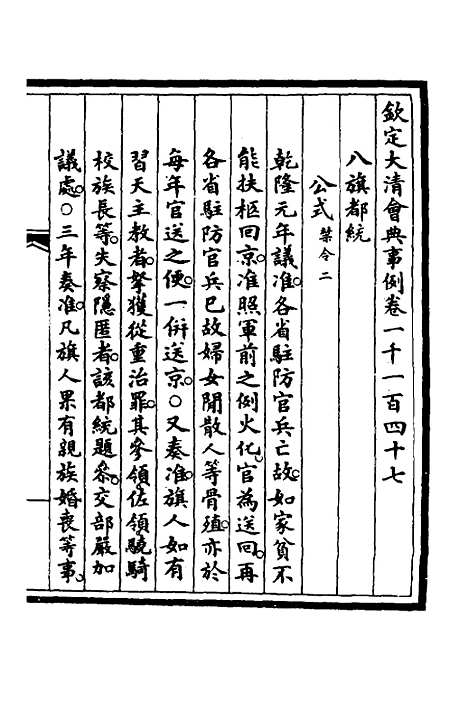 欽定大清會典事例卷一千一百四十七
八旗都統
公式禁令二
乾隆元年議准。各省駐防官兵亡故。如家貧不
能扶柩回京。准照軍前之例火化。官為送回。再
各省駐防官兵已故婦女閒散人等骨殖。亦於
每年官送之便。一併送京。○又奏准。旗人如有
習天主教者。拏獲從重治罪。其參領佐領驍騎
校族長等。失察隱匿者。該都統題參。交部嚴加
議處。○三年奏准。凡旗人果有親族婚喪等事。